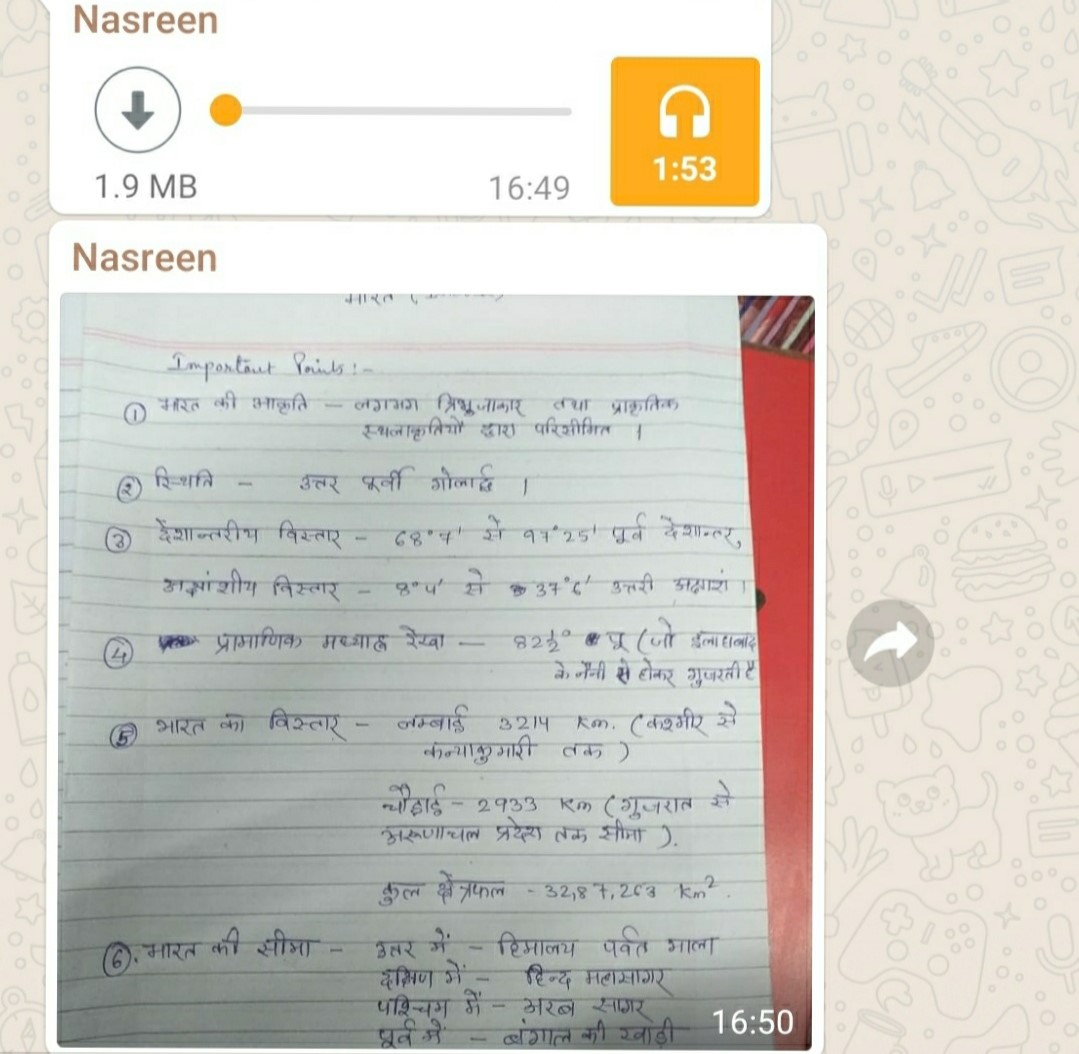 Nasreen
1.9 MB
16:49
1:53
Nasreen
भारत
Important Points :-
① भारत की आकृति – लगभग त्रिभुजाकार तथा प्राकृतिक
स्थलाकृतियों द्वारा परिसीमित ।
② स्थिति – उत्तर पूर्वी गोलार्द्ध ।
③ देशान्तरीय विस्तार – 68°7' से 97°25' पूर्व देशान्तर,
अक्षांशीय विस्तार – 8°4' से 37°6' उत्तरी अक्षारां ।
④ प्रामाणिक मध्याह्न रेखा – 82½° पू (जो इलाहाबाद
के नैनी से होकर गुजरती है
⑤ भारत का विस्तार – लम्बाई 3214 Km. (कश्मीर से
कन्याकुमारी तक )
चौड़ाई – 2933 Km (गुजरात से
अरूणाचल प्रदेश तक सीमा ).
कुल क्षेत्रफल - 32,87,263 Km².
⑥. भारत की सीमा – उत्तर में – हिमालय पर्वत माला
दक्षिण में – हिन्द महासागर
पश्चिम में – अरब सागर
पूर्व में – बंगाल की खाड़ी
16:50